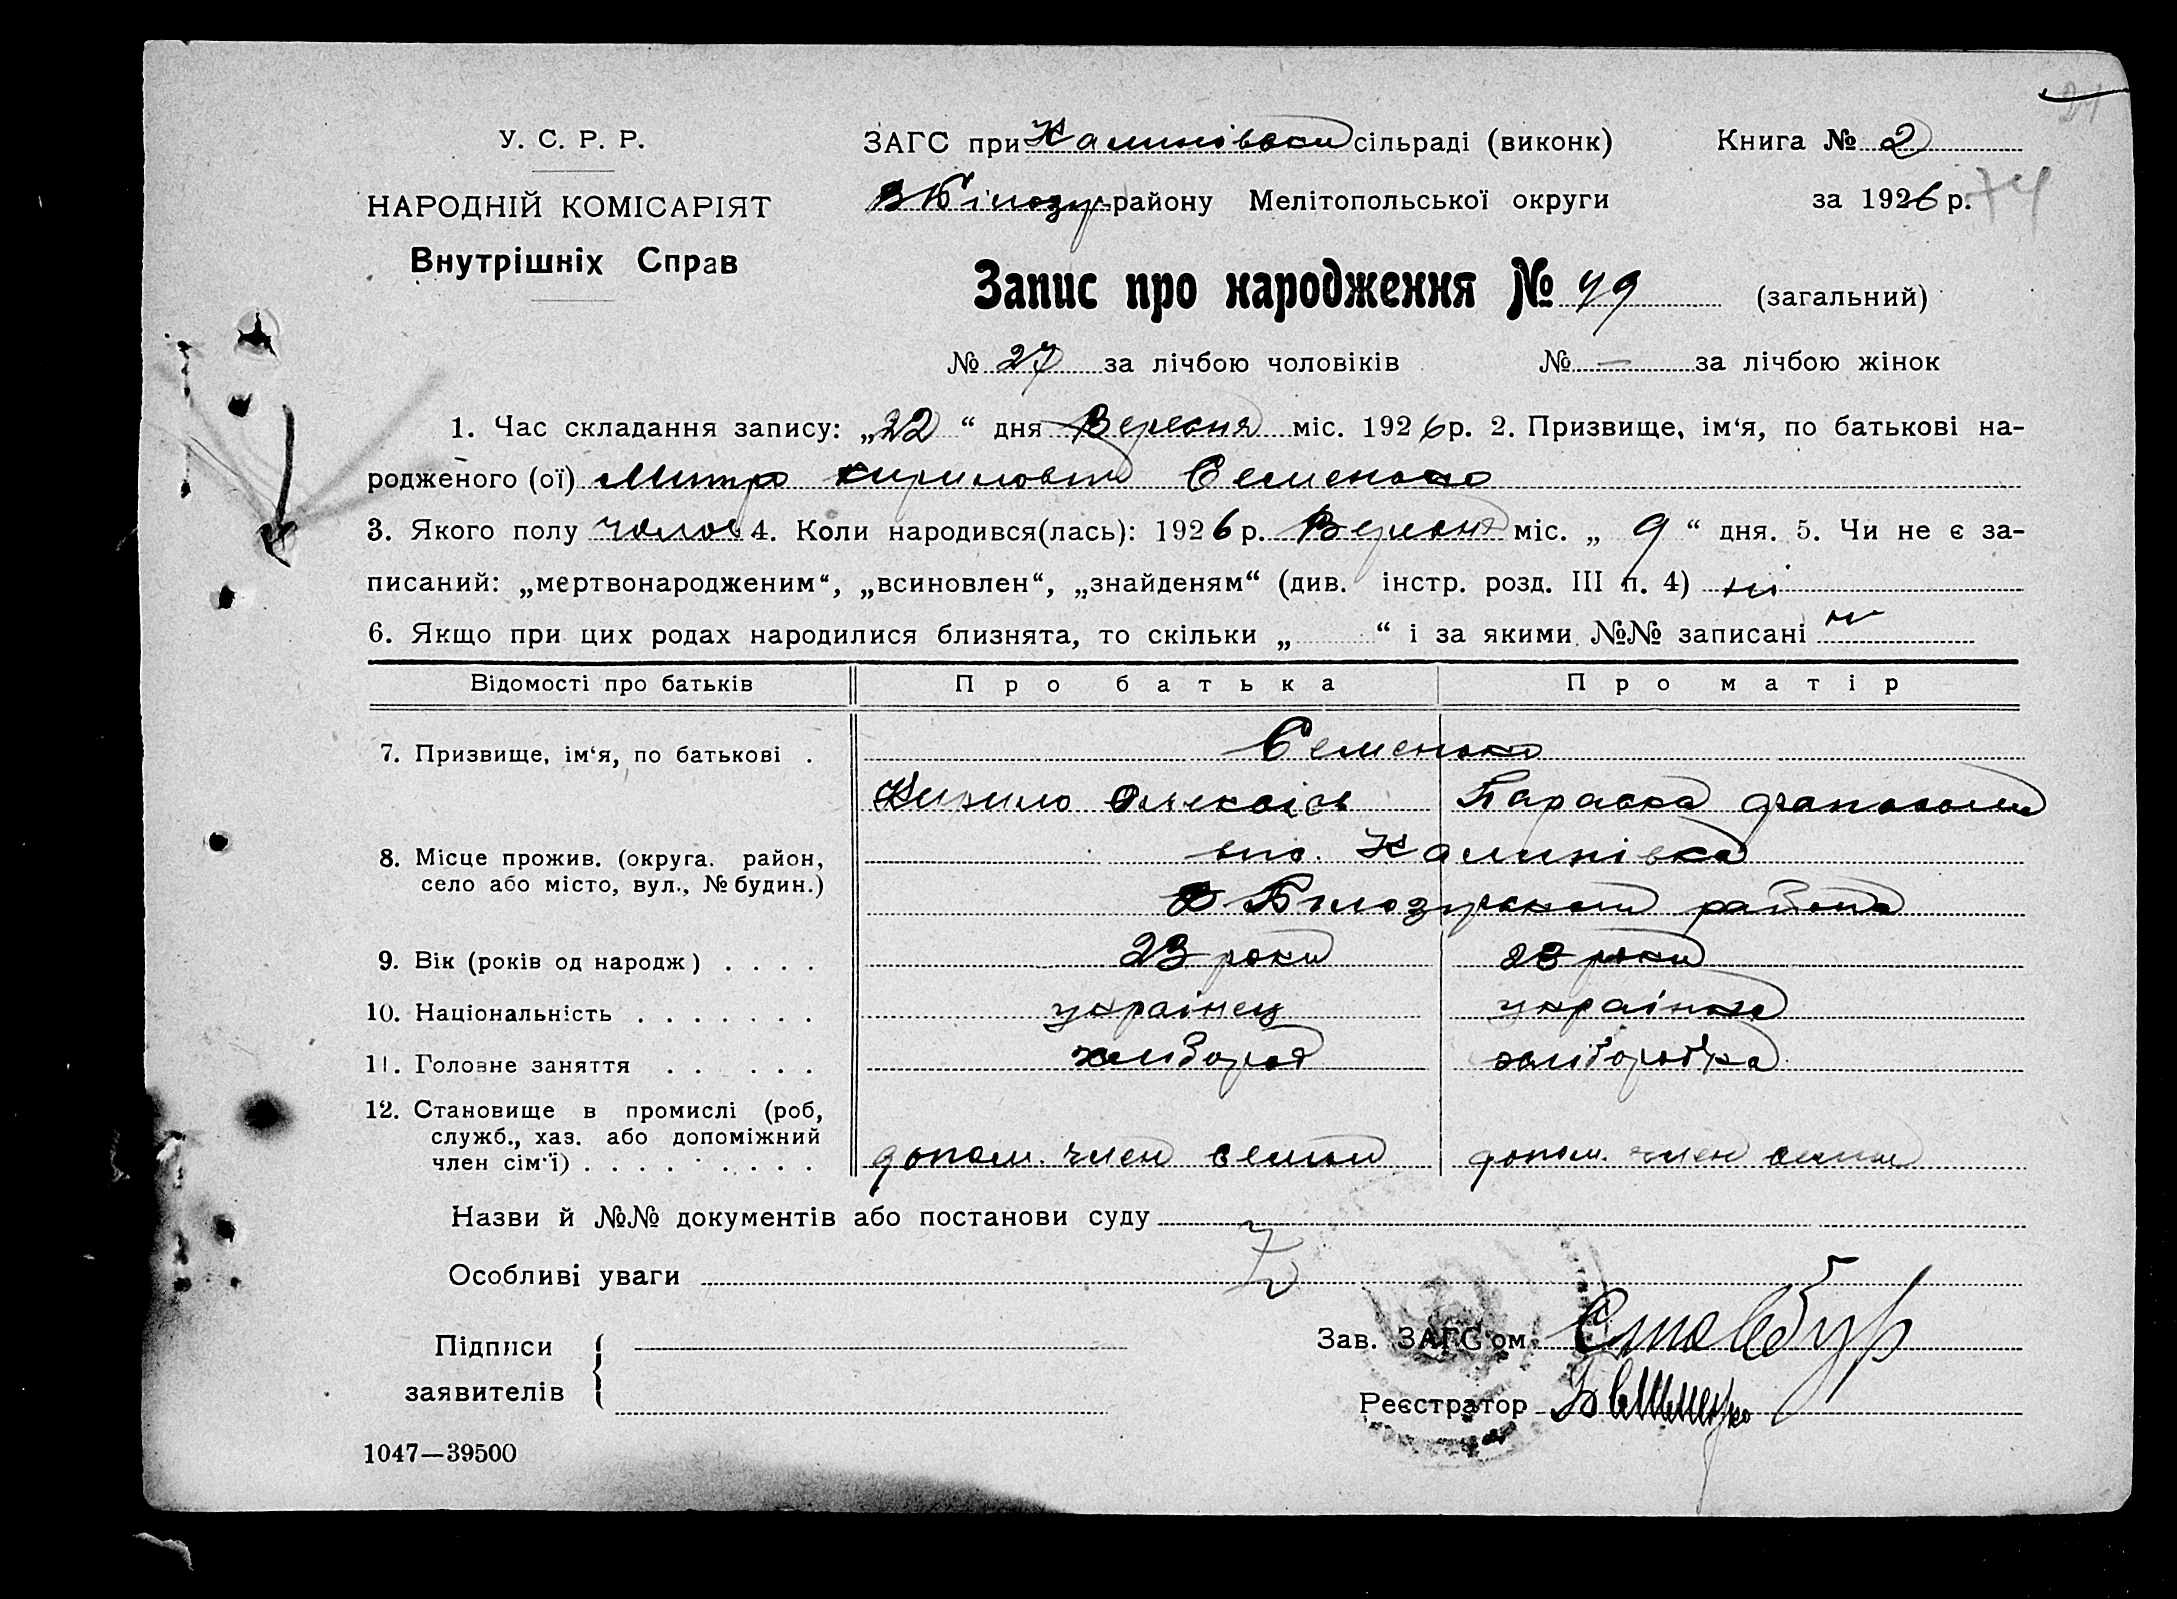 У. С. Р. Р.
НАРОДНІЙ КОМІСАРІЯТ
Внутрішніх Справ
ЗАГС при Калинівски сільраді (виконк)
В Білозур. району Мелітопольської округи
Книга № 2
за 1926 р.
74
Запис про народження № 49 (загальний)
№ 27 за лічбою чоловіків № — за лічбою жінок
1. Час складання запису: „22“ дня Вересня міс. 1926 р. 2. Призвище, ім‘я, по батькові на-
родженого (ої) Митро Кирилович Семенько
3. Якого полу чолов 4. Коли народився(лась): 1926 р. Вересня міс. „ 9 “ дня. 5. Чи не є за-
писаний: „мертвонародженим“, „всиновлен“, „знайденям“ (див. інстр. розд. III п. 4) ні
6. Якщо при цих родах народилися близнята, то скільки „ “ і за якими №№ записані
Відомості про батьків Про батька Про матір
7. Призвище, ім‘я, по батькові . Семенько
Кирило Олексієв Параска
8. Місце прожив. (округа. район, Калинівка
село або місто, вул., № будин.) В Білозурського району
9. Вік (років од народж) . . . . 23 роки 23 роки
10. Національність . . . . . . . українец українка
11. Головне заняття . . . . . хлібороб хліборобка
12. Становище в промислі (роб,
служб., хаз. або допоміжний
член сім‘ї) . . . . . . . . . допом. член семьи допом. член семьи
Назви й №№ документів або постанови суду
Особливі уваги
Підписи
заявителів
Зав. ЗАГС‘ом Стовбур
Реєстратор
1047—39500